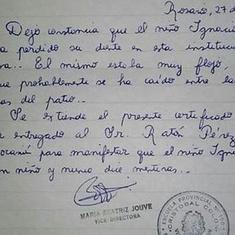 Rosario, 27 d
Dejo constancia que el niño Ignaci
a perdido su diente en esta institu
a... El mismo estaba muy flojo,
ue probablemente se ha caído entre la
as del patio...
Se extiende el presente certificado
r entregado al Sr. Ratón Pérez
ocaní para manifestar que el niño Igna
en niño y nunca dice mentiras...
MARIA BEATRIZ JOUVE
VICE DIRECTORA
ESCUELA PROVINCIAL